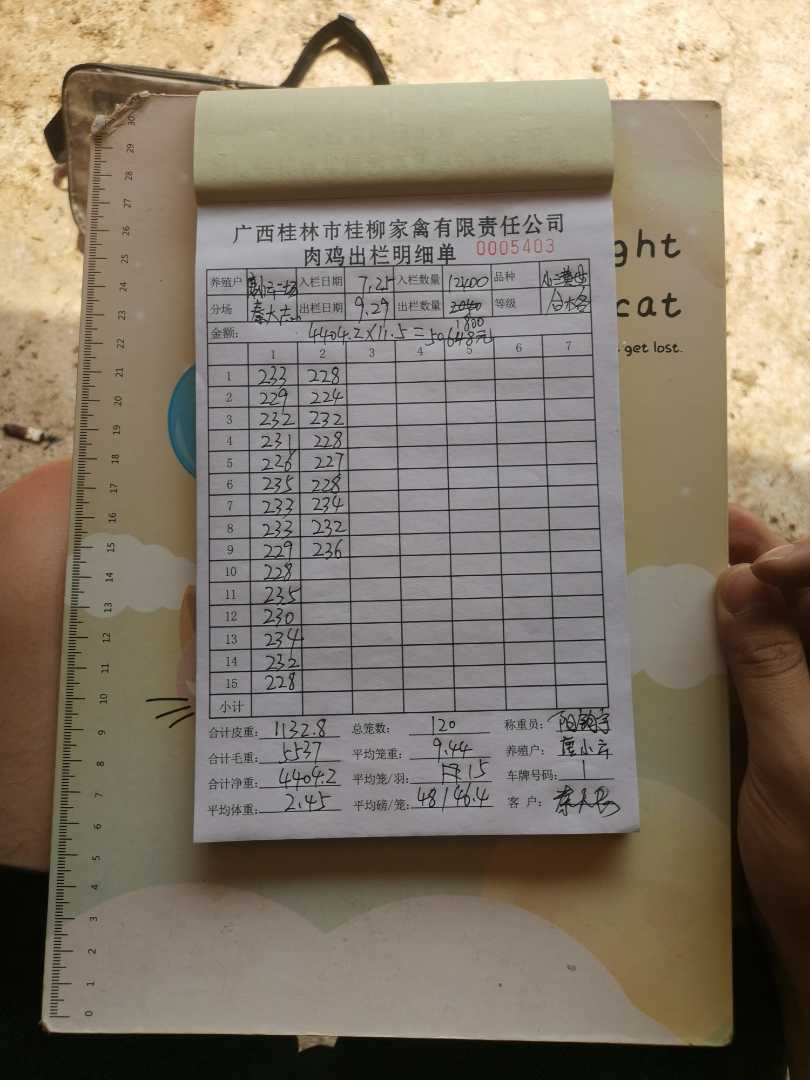 广西桂林市桂柳家禽有限责任公司
肉鸡出栏明细单 0005403
养殖户 入栏日期 7.25 入栏数量 12400 品种
分场 秦大 出栏日期 9.29 出栏数量 1800 等级 合格
金额: 4404.2×11.5=50648元
1 2 3 4 5 6 7
1 233 228
2 229 224
3 232 232
4 231 228
5 226 227
6 235 228
7 233 234
8 233 232
9 229 236
10 228
11 235
12 230
13 234
14 232
15 228
小计
合计皮重: 1132.8 总笼数: 120 称重员:
合计毛重: 5537 平均笼重: 9.44 养殖户: 唐小云
合计净重: 4404.2 平均笼/羽: 15 车牌号码:
平均体重: 2.45 平均磅/笼: 48/46.4 客户:
ght
cat
get lost.
30
29
28
27
26
25
24
23
22
21
20
19
18
17
16
15
14
13
12
11
10
9
8
7
6
5
4
3
2
1
0